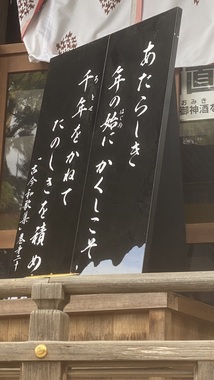 あたらしき
年の始に かくしこそ
千年をかねて
たのしきを積め
「古今和歌集」巻第二十
直
おみき
御神酒を